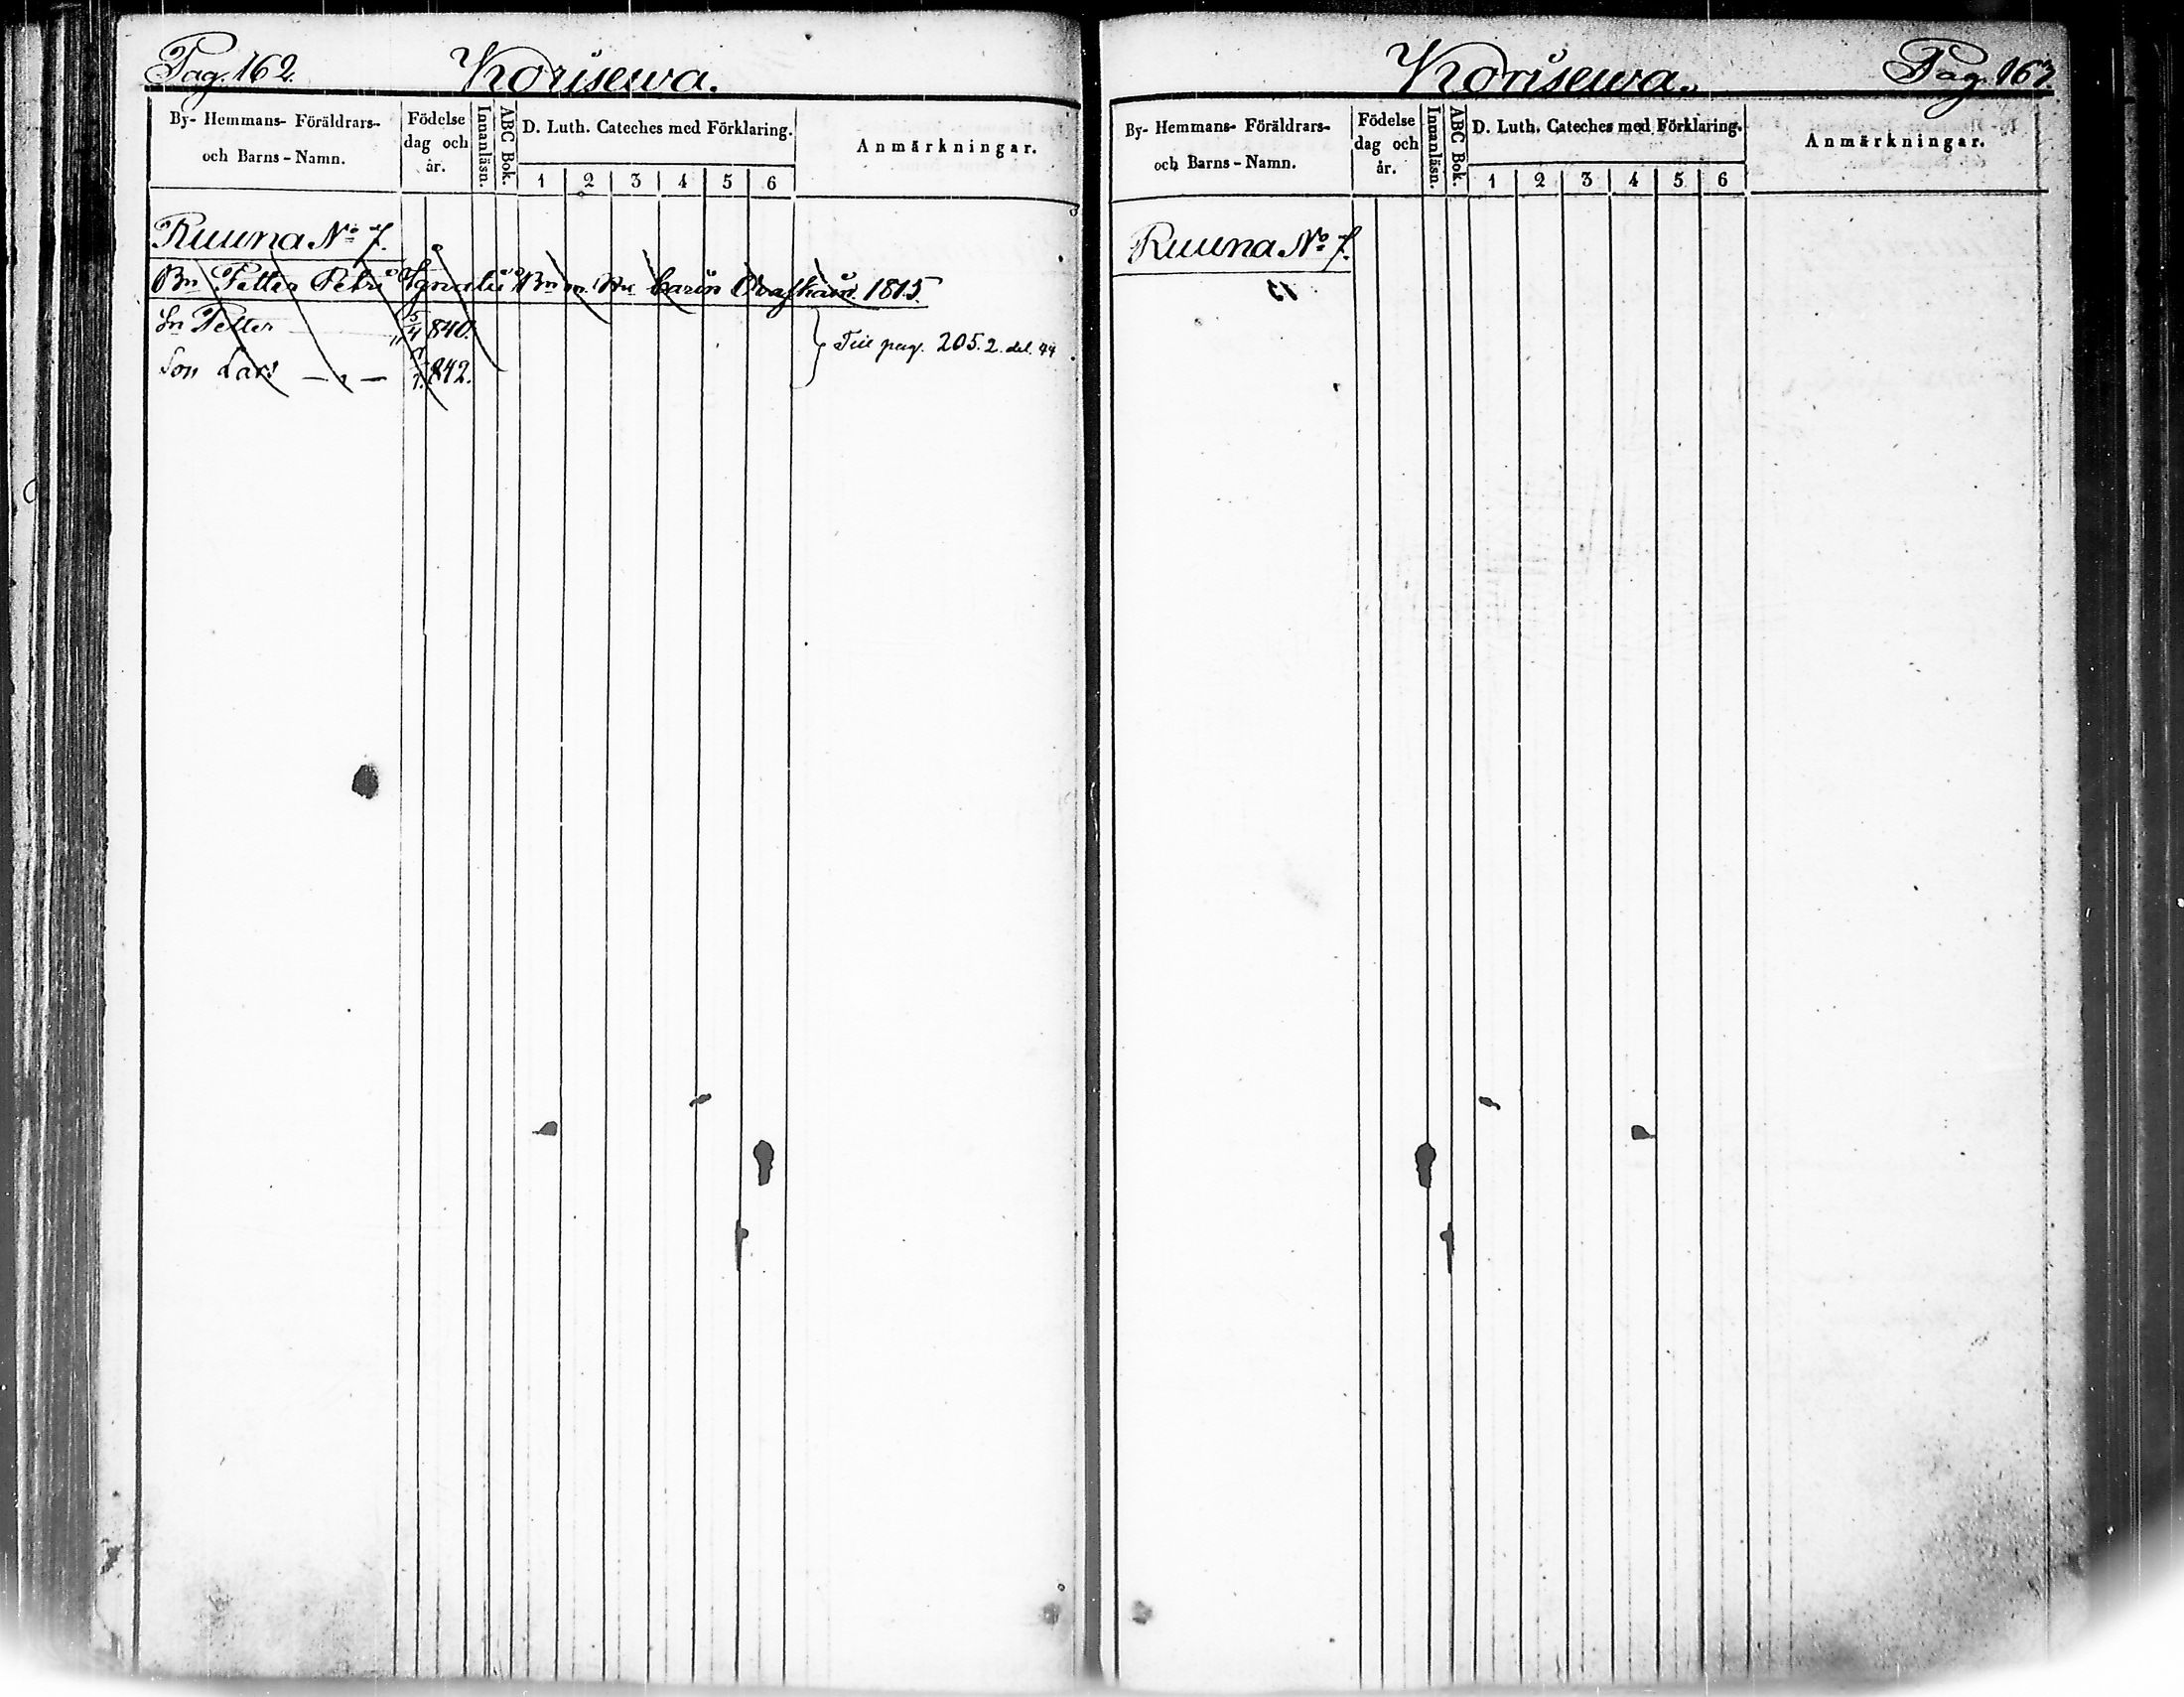 Pag. 162.
Korisewa.
By- Hemmans- Föräldrars-
och Barns-Namn.
Födelse
dag och
år.
Innanläsn.
ABC Bok.
D. Luth. Cateches med Förklaring.
1 2 3 4 5 6
Anmärkningar.
Ruuna No 7.
Bn Petter Petri Ignatius Bn m. Hu Carin 1815.
Sn Petter 5/4 840.
Son Lars 842.
Till pag. 205. 2. del. 44
Korisewa.
Pag. 163.
By- Hemmans- Föräldrars-
och Barns-Namn.
Födelse
dag och
år.
Innanläsn.
ABC Bok.
D. Luth. Cateches med Förklaring.
1 2 3 4 5 6
Anmärkningar.
Ruuna No 7.